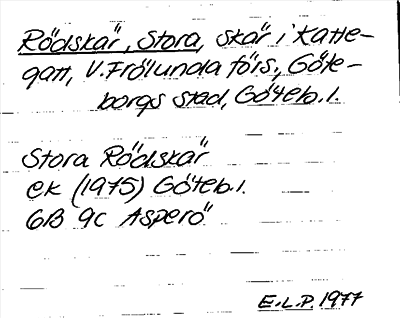 Rödskär, Stora, skär i Katte-
gatt, V. Frölundaförs., Göte-
borgs stad, Göteb. l.
Stora Rödskär
ek (1975) Göteb. l.
6B 9c Asperö
E.L.P. 1977